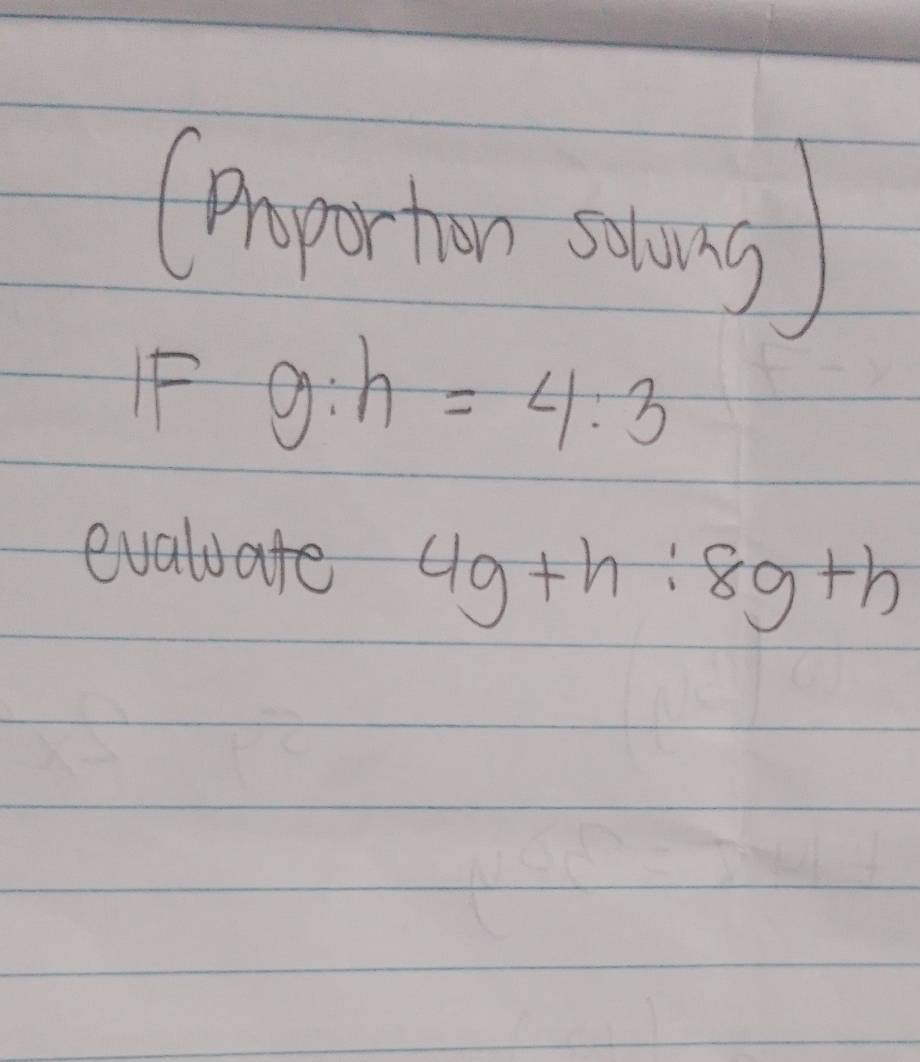 (Proportion solving)
IF g:h = 4:3
evaluate 4g+h : 8g+h